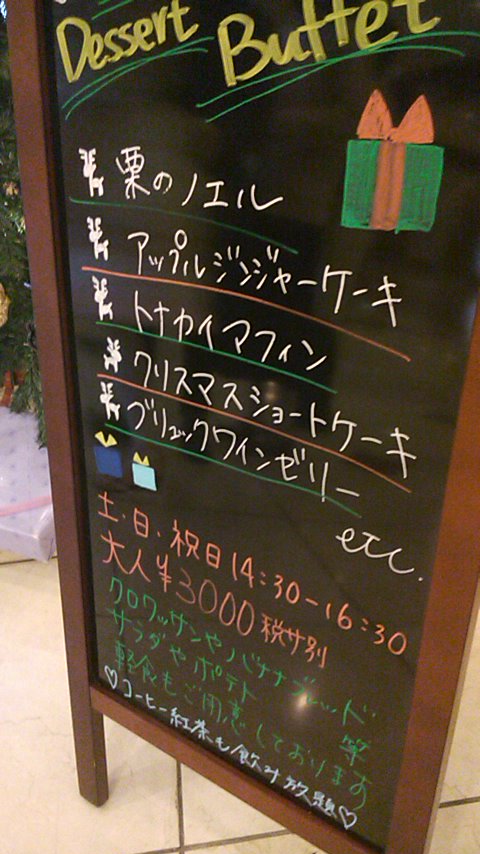 Dessert Buffet
栗のノエル
アップルジンジャーケーキ
トナカイマフィン
クリスマスショートケーキ
ブリュックワインゼリー
etc.
土・日・祝日 14:30-16:30
大人 ¥3000 税サ別
クロワッサンやバナナブレッド
サラダやポテト 等
軽食もご用意しております
♡コーヒー紅茶も飲み放題♡